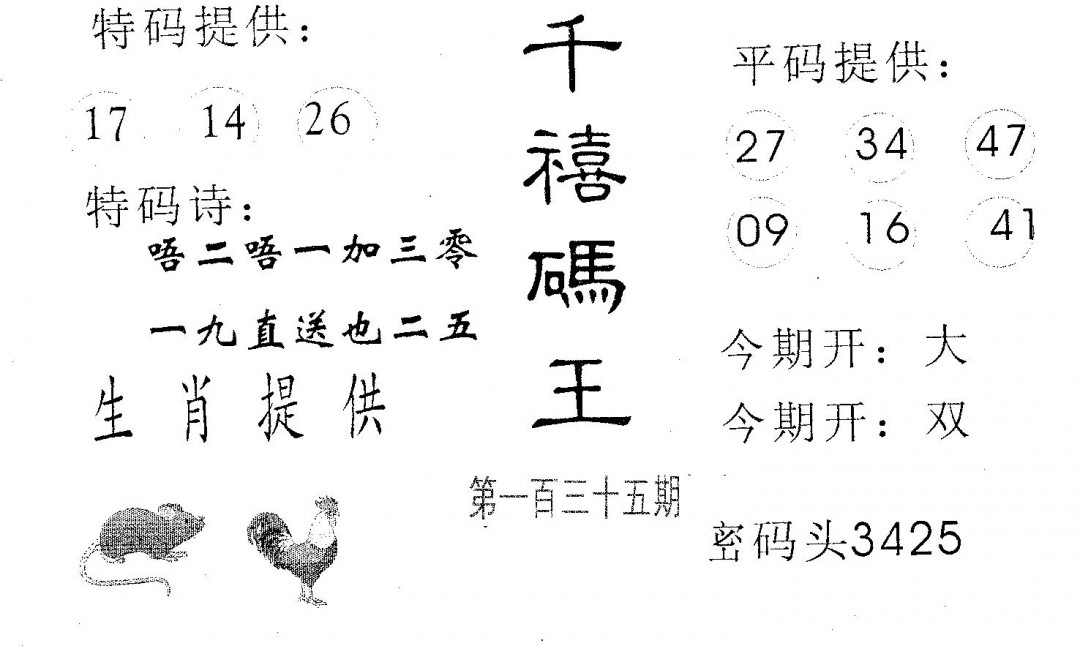 特码提供：
17 14 26
特码诗：
唔二唔一加三零
一九直送也二五
生肖提供
千禧碼王
第一百三十五期
平码提供：
27 34 47
09 16 41
今期开：大
今期开：双
密码头3425